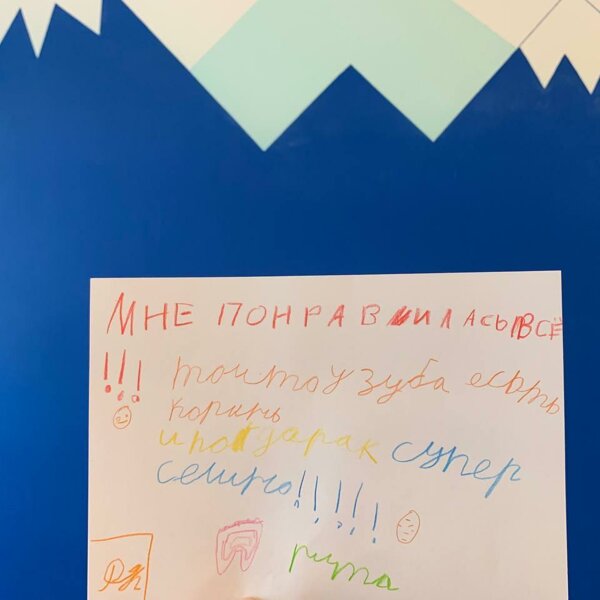 МНЕ ПОНРАВИЛАСЬ ВСЁ
!!!
тоитоу зуба есьть
коринь
и подарак супер
селно!!!!!
рита